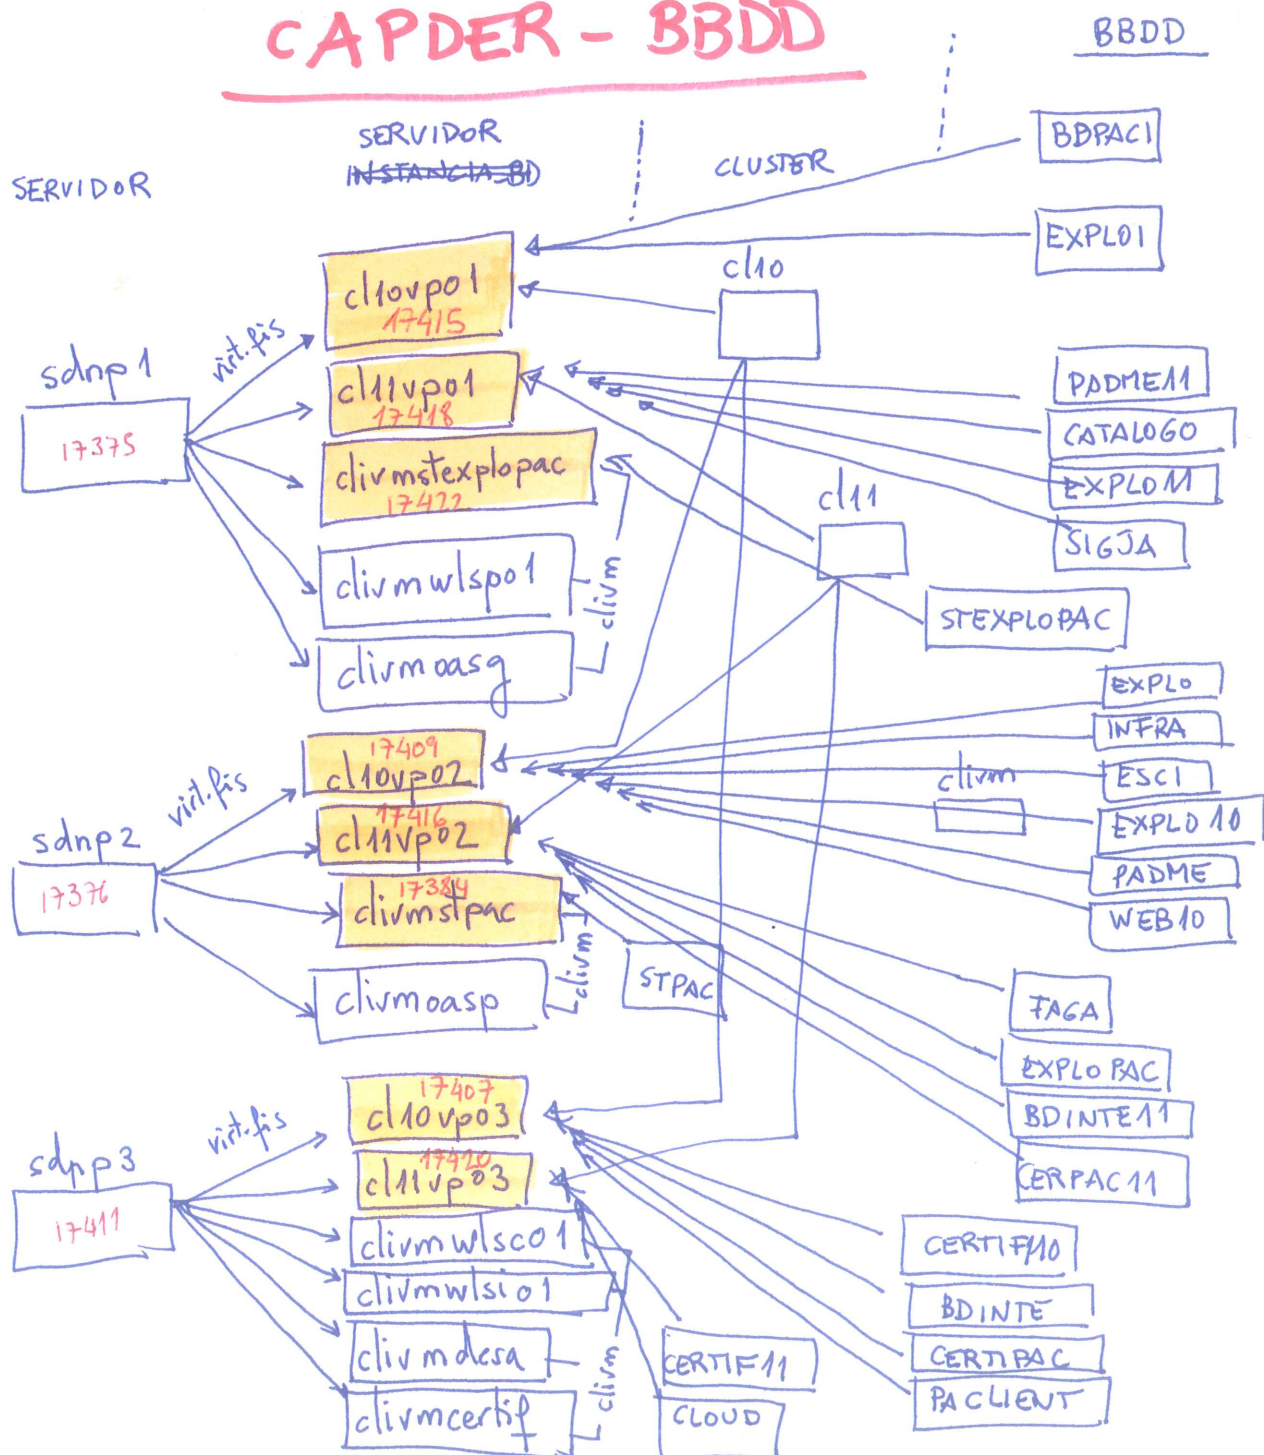 CAPDER - BBDD
BBDD
SERVIDOR
SERVIDOR
INSTANCIA_BD
CLUSTER
BBPAC1
EXPLO1
cl10
cl10vp01
17415
sdnp1
17375
virt.fis
cl11vp01
17418
clivmstexplopac
17422
clivmwlspo1
clivmoasg
clivm
PADME11
CATALOGO
EXPLO11
SIGJA
cl11
STEXPLOPAC
EXPLO
INFRA
ESCI
clivm
EXPLO10
PADME
WEB10
sdnp2
17376
virt.fis
17409
cl10vp02
17416
cl11vp02
17384
clivmstpac
clivmoasp
clivm
STPAC
FAGA
EXPLOPAC
BDINTE11
CERPAC11
sdnp3
17411
virt.fis
17407
cl10vp03
17420
cl11vp03
clivmwlsco1
clivmwlsio1
clivmdesa
clivmcertif
clivm
CERTIF11
CLOUD
CERTIF10
BDINTE
CERTIPAC
PACLIENT